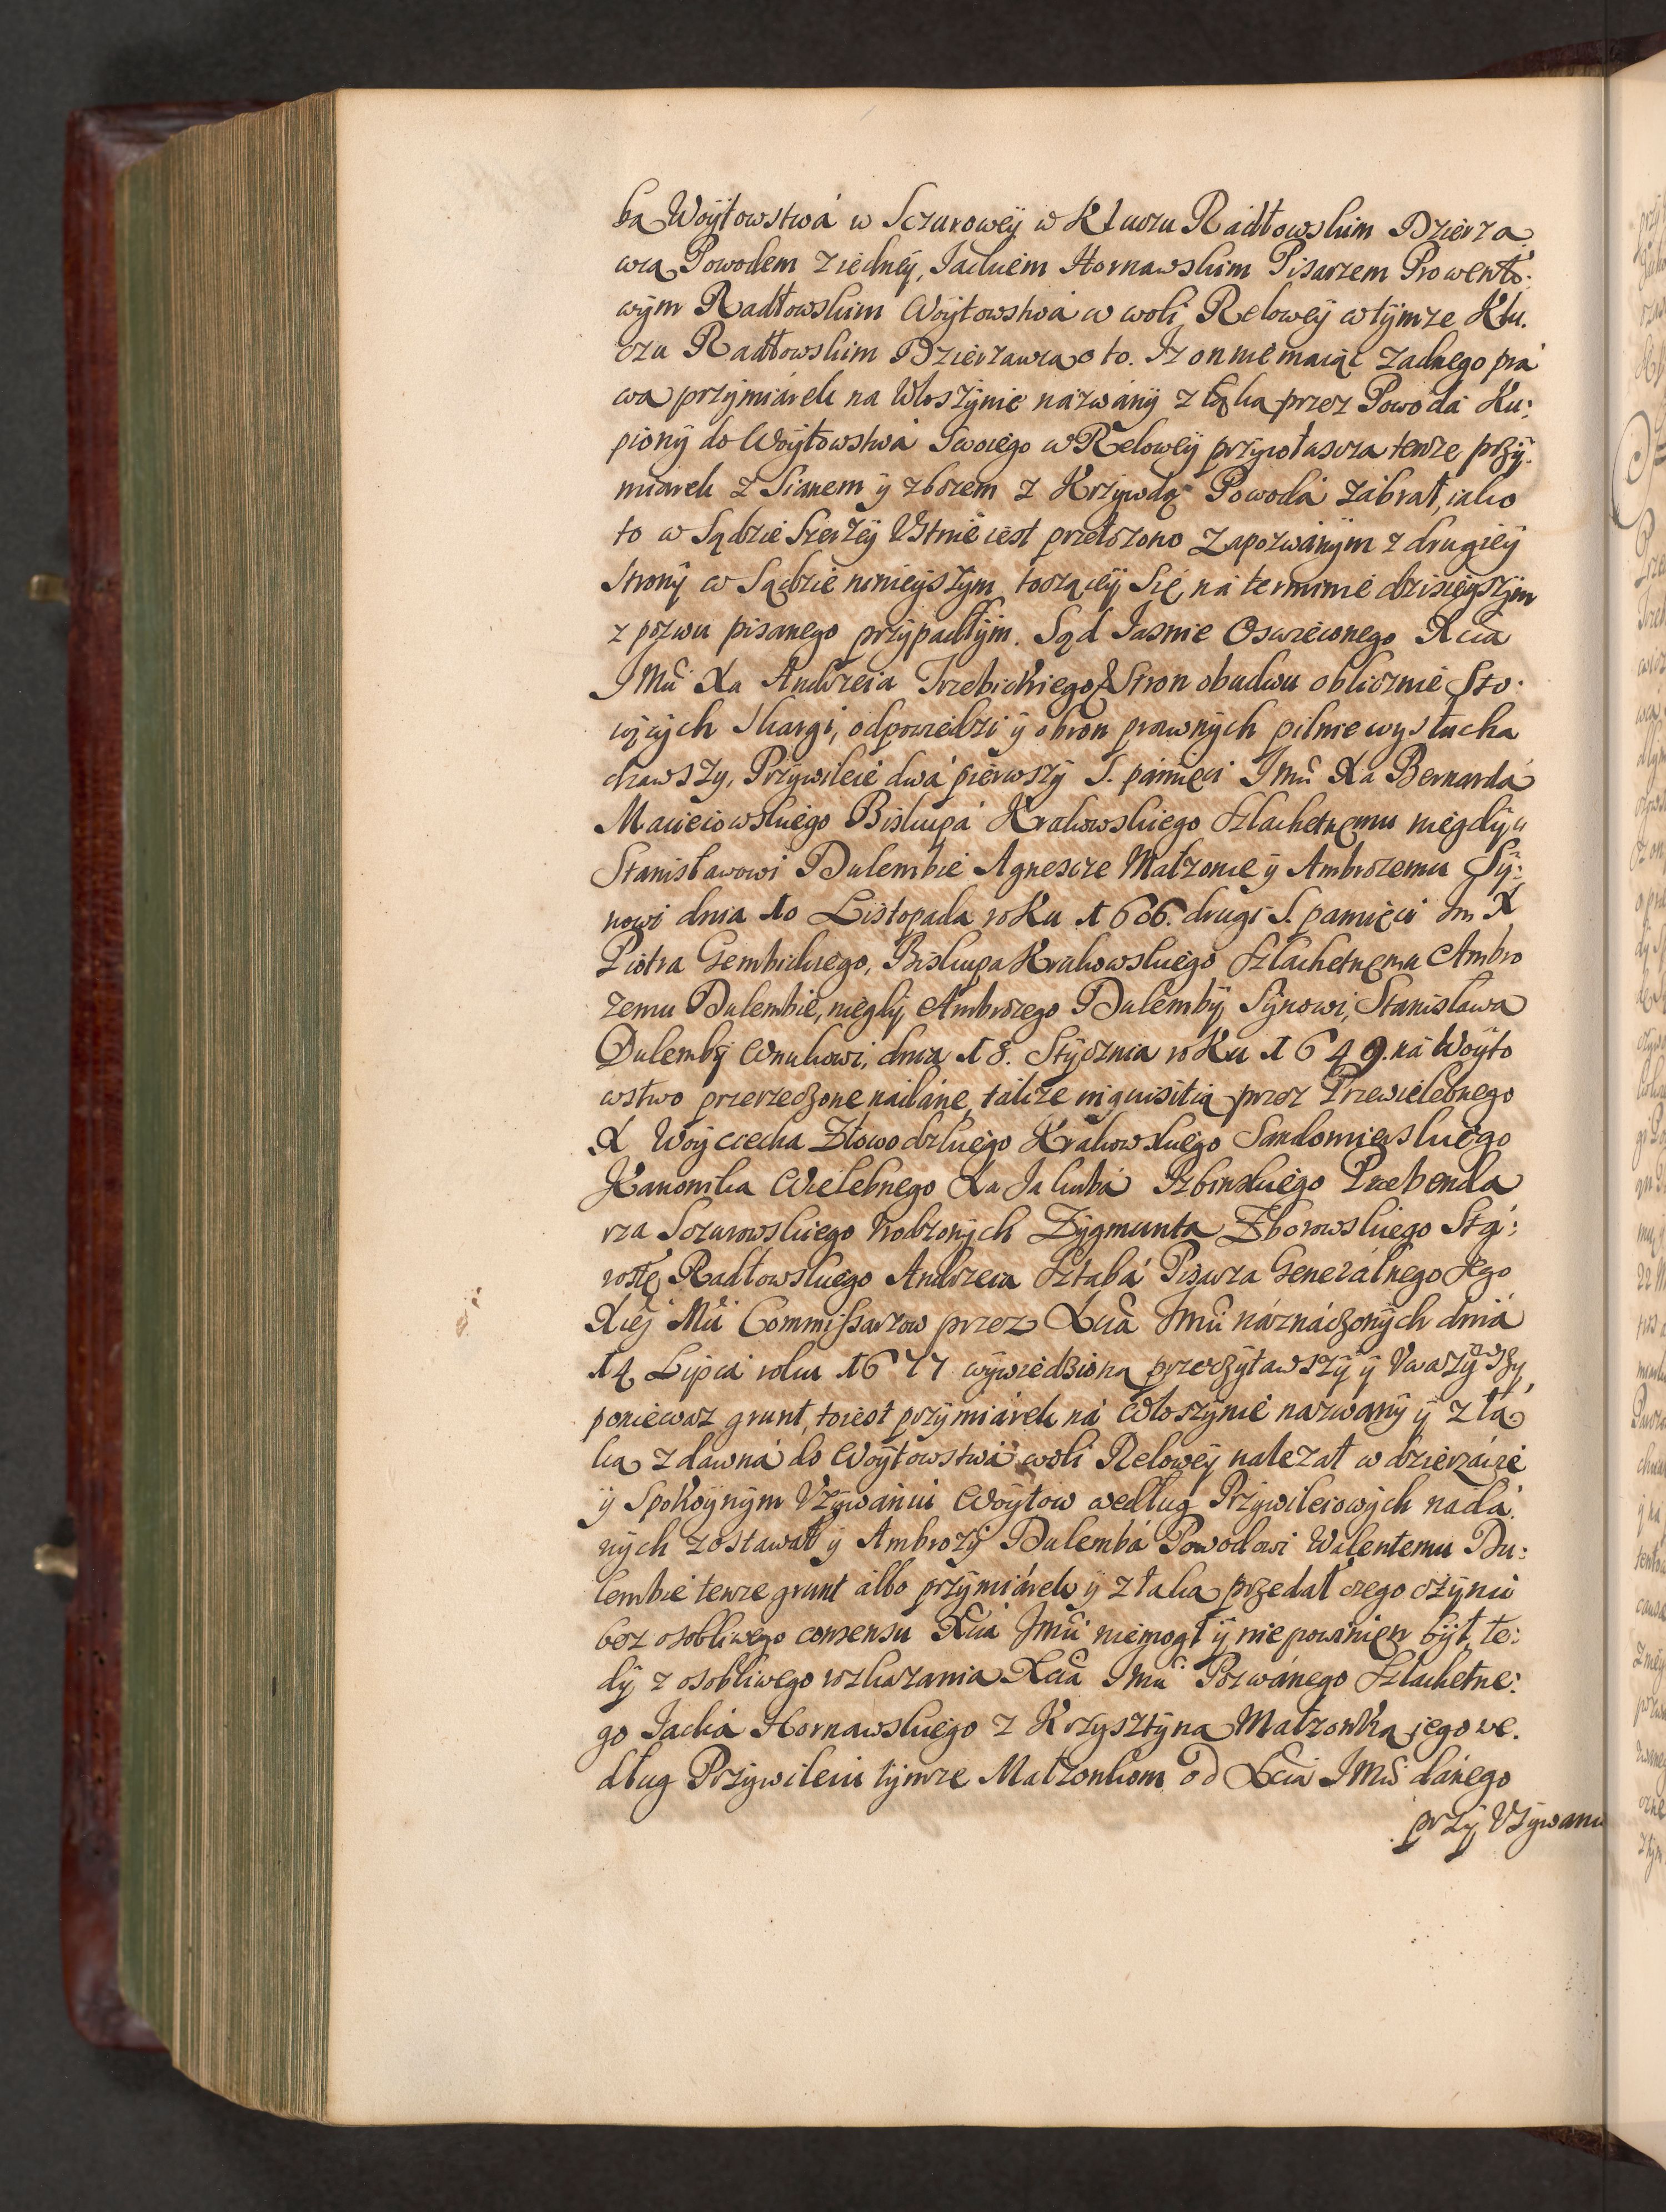 ba Woytowstwá w Sczurowey w Kluczu Rádłowskim Dzierza
wcą Powodem z iedney, Iackiem Hornawskim Pisarzem Prowento:
wym Radłowskim Woytowstwá w woli Relowey w tymze Klu.
czu Radłowskim Dzierzawcą o to. Iz on nie maiąc zadnego prá
wa przymiárek na Włoszynie názwány z łąką przez Powodá Ku:
piony do Woytowstwá Swoiego w Relowey przywłascza tenze przy:
miarek z Sianem y zbozem z Krzywdą Powodá zábrał, iako
to w Sądzie Szerzey Vstnie iest przełozono Zapozwánym z drugiey
Strony w Sądzie ninieyszym toczącey Się ná terminie dzisieyszym
z pozwu pisanego przypadłym. Sąd Iasnie Oswieconego Xcia
IMci Xa Andrzeia Trzebickiego Stron obudwu oblicznie Sto:
iących Skargi, odpowiedzi y obron prawnych pilnie wysłucha
chawszy, Przywileie dwá pierwszy S. pámięci Imci Xa Bernardá
Macieiowskiego Biskupá Krakowskiego Szlachetnemu niegdy
Stanisławowi Dulembie Agnescze Małzonce y Ambrozemu Sy:
nowi dnia 10 Listopada roku 1606. drugi S. pamięci Im X
Piotra Gembickiego, Biskupa Krakowskiego Szlachetnemu Ambro
zemu Dulembie, niegdy Ambrozego Dulemby Synowi, Stanisława
Dulemby Wnukowi, dnia 18. Stycznia roku 1649. ná Woyto
wstwo przerzeczone nádáne, takze inquisitią przez Przewielebnego
X Woyciecha Złowodzkiego Krakowskiego Sandomierskiego
Kanonika Wielebnego Xa Jakubá Izbinskiego Prebenda
rza Sczurowskiego Vrodzonych Zygmunta Zborowskiego Stá:
rostę Radłowskiego Andrzeia Sztabá Pisarza Generálnego Iego
Xcey Mci Commissarzow przez Xcia Imci náznáczonych dniá
14 Lipca roku 1677 wywiedzioną przeczytawszy y Vwazywszy
poniewaz grunt, toiest przymiárek ná Włoszynie nazwany y z łą
ką zdawná do Woytowstwá woli Relowey nalezał w dzierzáwie
y Spokoynym Vzywániu Woytow według Przywileiowych nadá:
nych zostawał y Ambrozy Dulembá Powodowi Walentemu Du:
lembie tenze grunt álbo przymiárek y z łaką przedał czego czynic
bez osobliwego consensu Xcia Imci niemogł y nie powinien był, te:
dy z osobliwego roskazania Xcia Imci Pozwánego Szlachetne:
go Iacká Hornawskiego z Krzysztyną Małzonką jego we.
dług Przywileiu tymze Małzonkom od Xcia IMci dánego
przy Vzywaniu